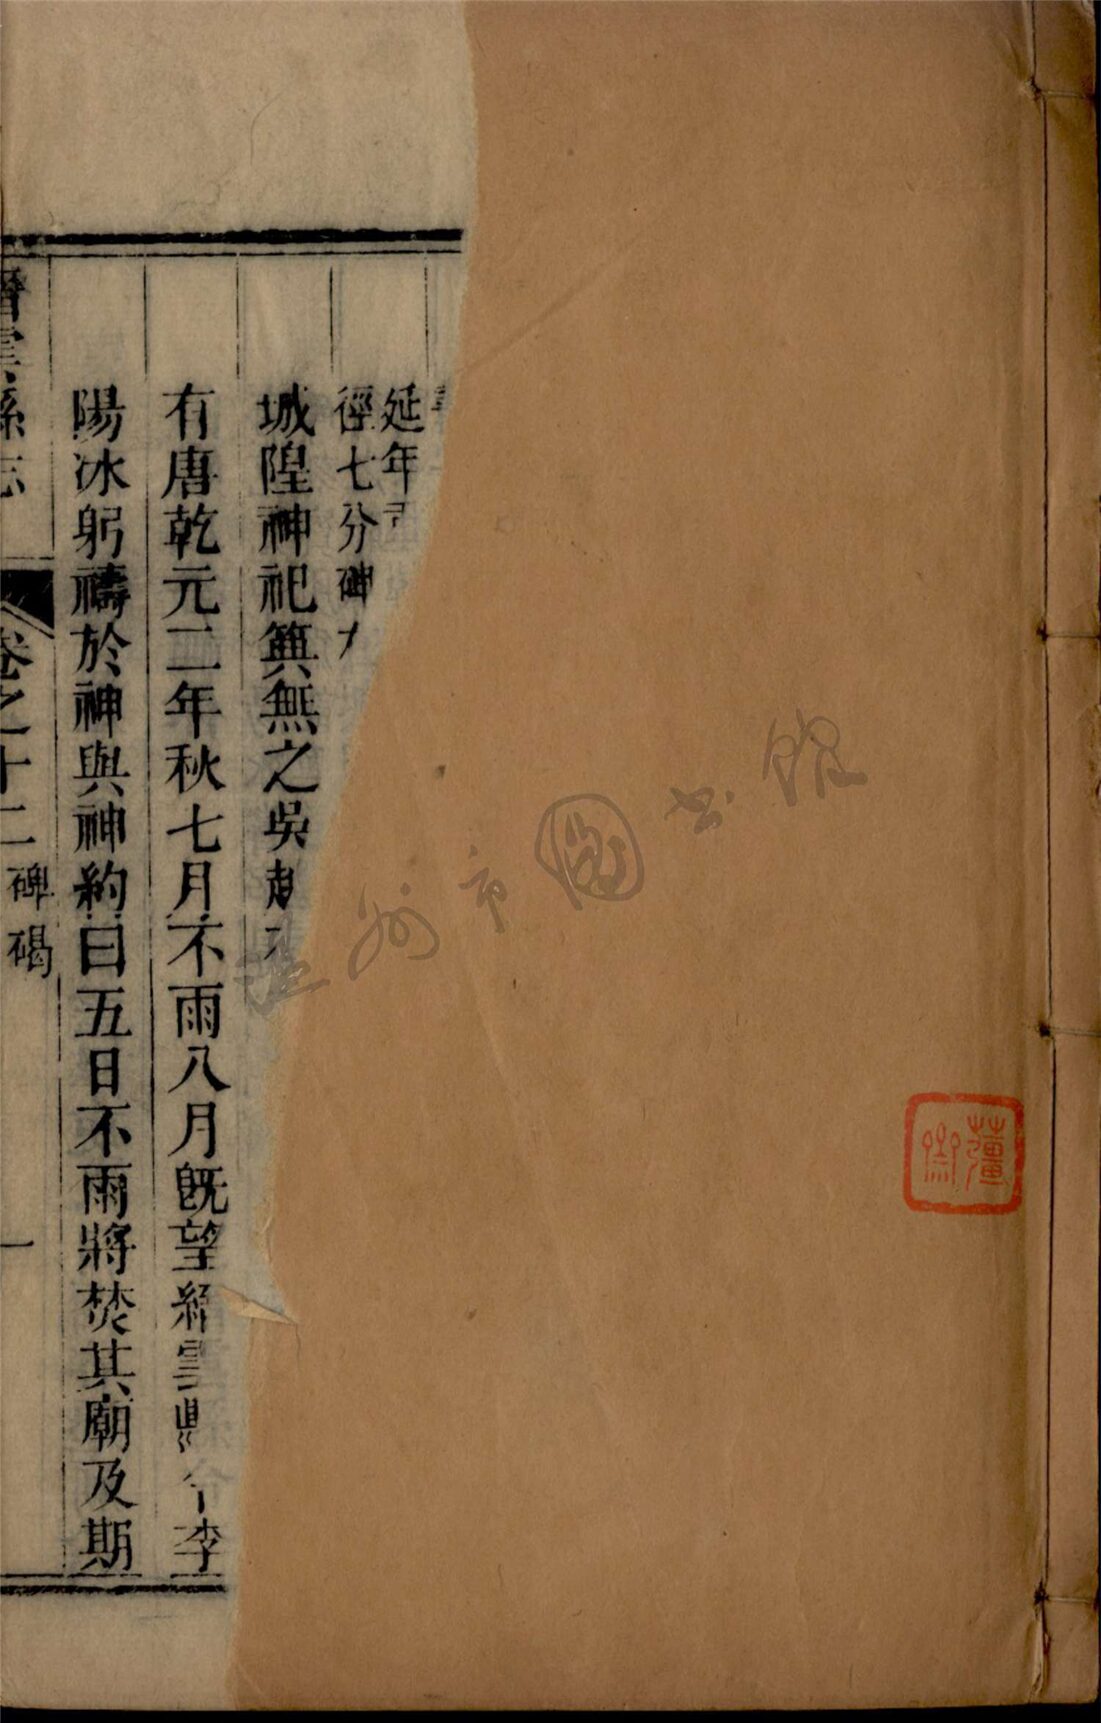 延年
徑七分碑
城隍神祀典無之吳越
有唐乾元二年秋七月不雨八月既望縉雲縣令李
陽冰躬禱於神與神約曰五日不雨將焚其廟及期
縉雲縣志 卷之十二 碑碣 一
溫州市圖書館